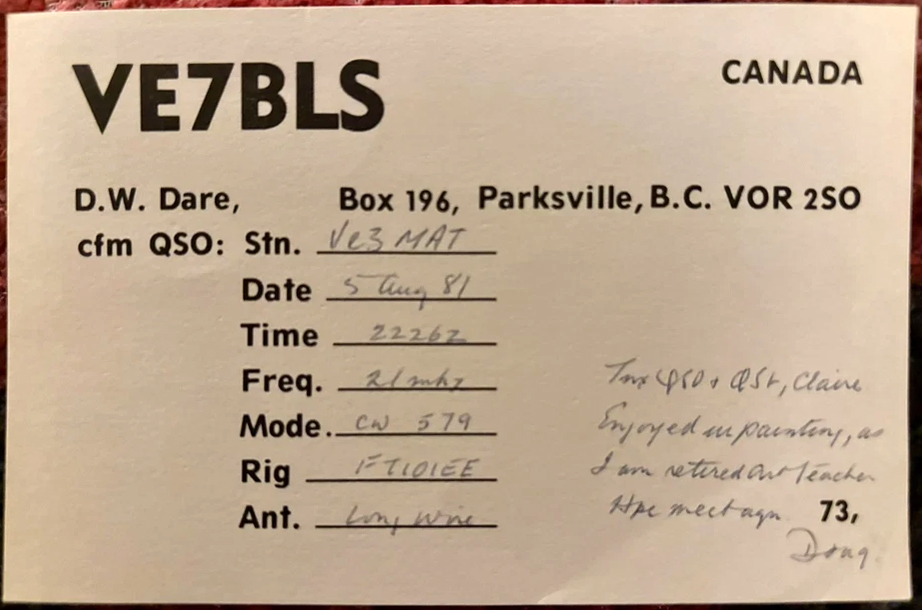 VE7BLS
CANADA
D.W. Dare, Box 196, Parksville, B.C. VOR 2SO
cfm QSO: Stn. Ve3 MAT
Date 5 Aug 81
Time 2226Z
Freq. 21 mhz
Mode. CW 579
Rig FT101EE
Ant. Long wire
Tnx QSO + QSL, Claire
Enjoyed ur painting, as
I am retired art teacher
Hpe meet agn. 73,
Doug